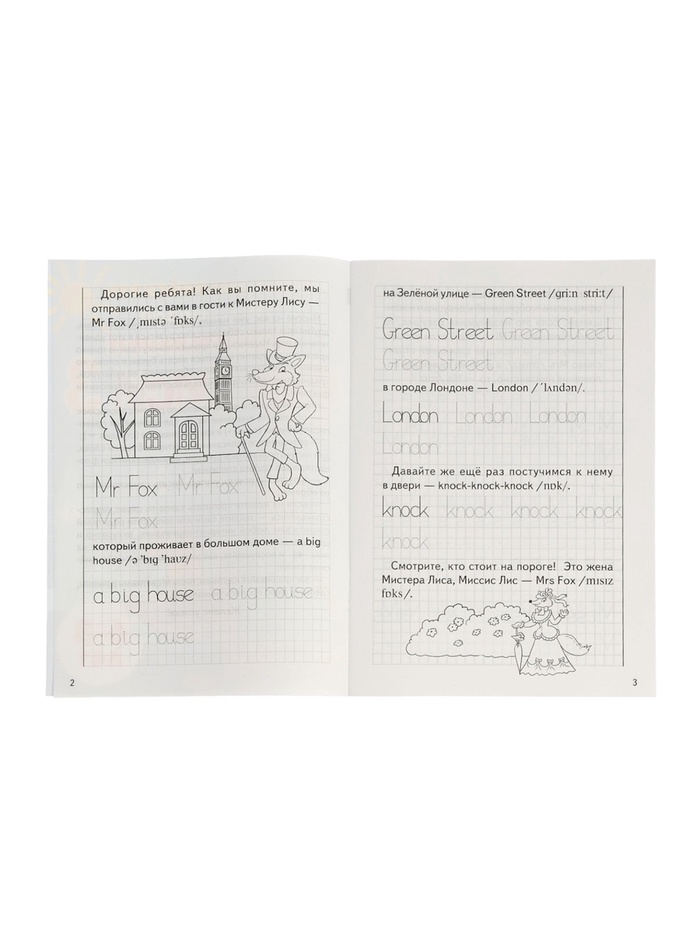 Дорогие ребята! Как вы помните, мы
отправились с вами в гости к Мистеру Лису —
Mr Fox /ˌmɪstə ˈfɒks/.
Mr Fox Mr Fox
Mr Fox
который проживает в большом доме — a big
house /ə ˈbɪg ˈhaʊz/
a big house a big house
a big house
2
на Зелёной улице — Green Street /gri:n stri:t/
Green Street Green Street
Green Street
в городе Лондоне — London /ˈlʌndən/.
London London London
London
Давайте же ещё раз постучимся к нему
в двери — knock-knock-knock /nɒk/.
knock knock knock knock
knock
Смотрите, кто стоит на пороге! Это жена
Мистера Лиса, Миссис Лис — Mrs Fox /mɪsɪz
fɒks/.
3